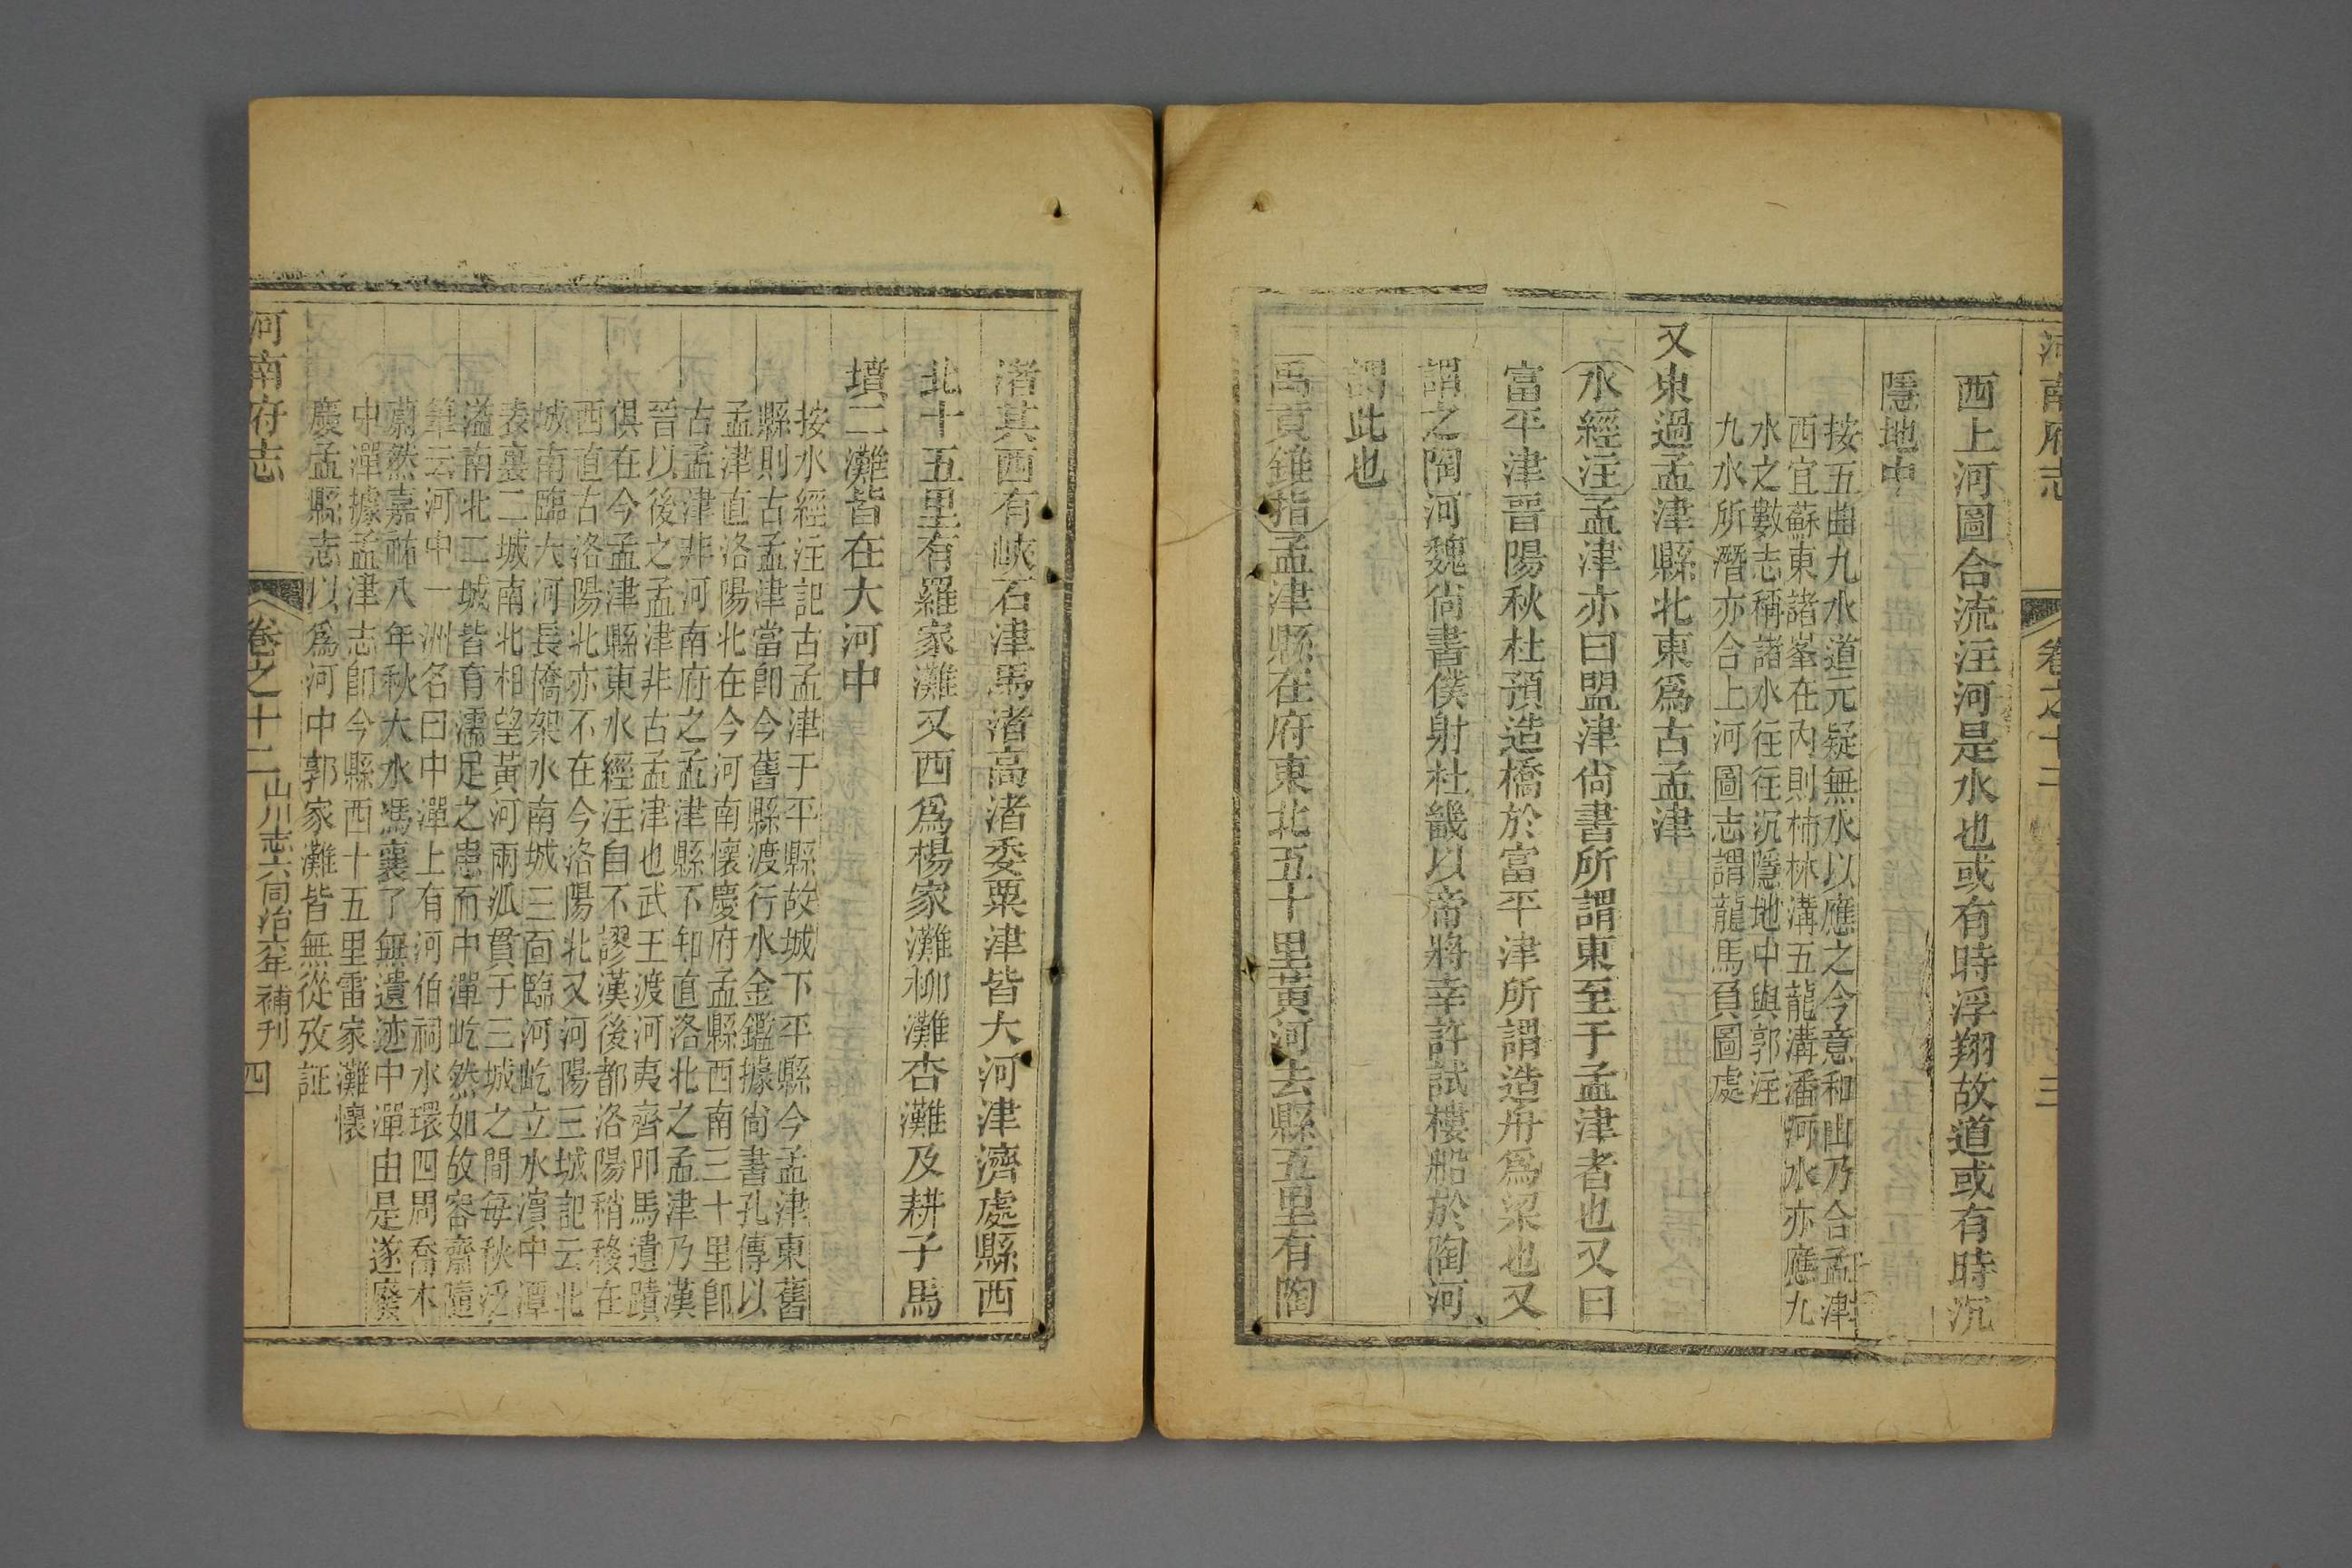 河南府志 卷之十二 三
西上河圖合流注河是水也或有時浮翔故道或有時沉
隱地中
按五曲九水道元疑無水以應之今意和山乃合孟津
西宜蘇東諸峯在内則柿林溝五龍溝潘河水亦應九
水之數志稱諸水往往沉隱地中與郭注
九水所潛亦合上河圖志謂龍馬負圖處
又東過孟津縣北東爲古孟津
水經注孟津亦曰盟津尙書所謂東至于孟津者也又曰
富平津晉陽秋杜預造橋於富平津所謂造舟爲梁也又
謂之陶河魏尙書僕射杜畿以帝將幸許試樓船於陶河
謂此也
禹貢錐指孟津縣在府東北五十里黃河去縣五里有陶
渚其西有峽石津馬渚高渚委粟津皆大河津濟處縣西
北十五里有羅家灘又西爲楊家灘柳灘杏灘及耕子馬
墳二灘皆在大河中
按水經注記古孟津于平縣故城下平縣今孟津東舊
縣則古孟津當卽今舊縣渡行水金鑑據尙書孔傳以
孟津直洛陽北在今河南懷慶府孟縣西南三十里卽
古孟津非河南府之孟津縣不知直洛北之孟津乃漢
晉以後之孟津非古孟津也武王渡河夷齊叩馬遺蹟
俱在今孟津縣東水經注自不謬漢後都洛陽稍移在
西直古洛陽北亦不在今洛陽北又河陽三城記云北
城南臨大河長橋架水南城三面臨河屹立水濱中潬
表裏二城南北相望黃河兩派貫于三城之間每秋泛
溢南北二城皆有濡足之患而中潬屹然如故容齋隨
筆云河中一洲名曰中潬上有河伯祠水環四周喬木
蔚然嘉祐八年秋大水馮襄了無遺迹中潬由是遂廢
中潬據孟津志卽今縣西十五里雷家灘懷
慶孟縣志以爲河中郭家灘皆無從攷証
河南府志 卷之十二 山川志六同治六年補刊 四